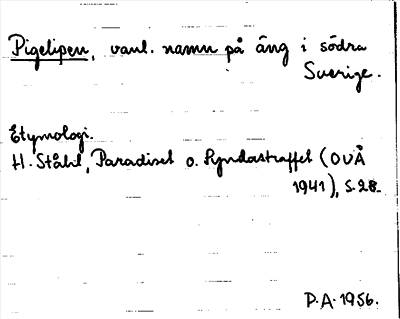 Pigelipen, vanl. namn på äng i södra
Sverige.
Etymologi.
H. Ståhl, Paradiset o. Syndastraffet (OUÅ
1941), s. 28.
P.A. 1956.